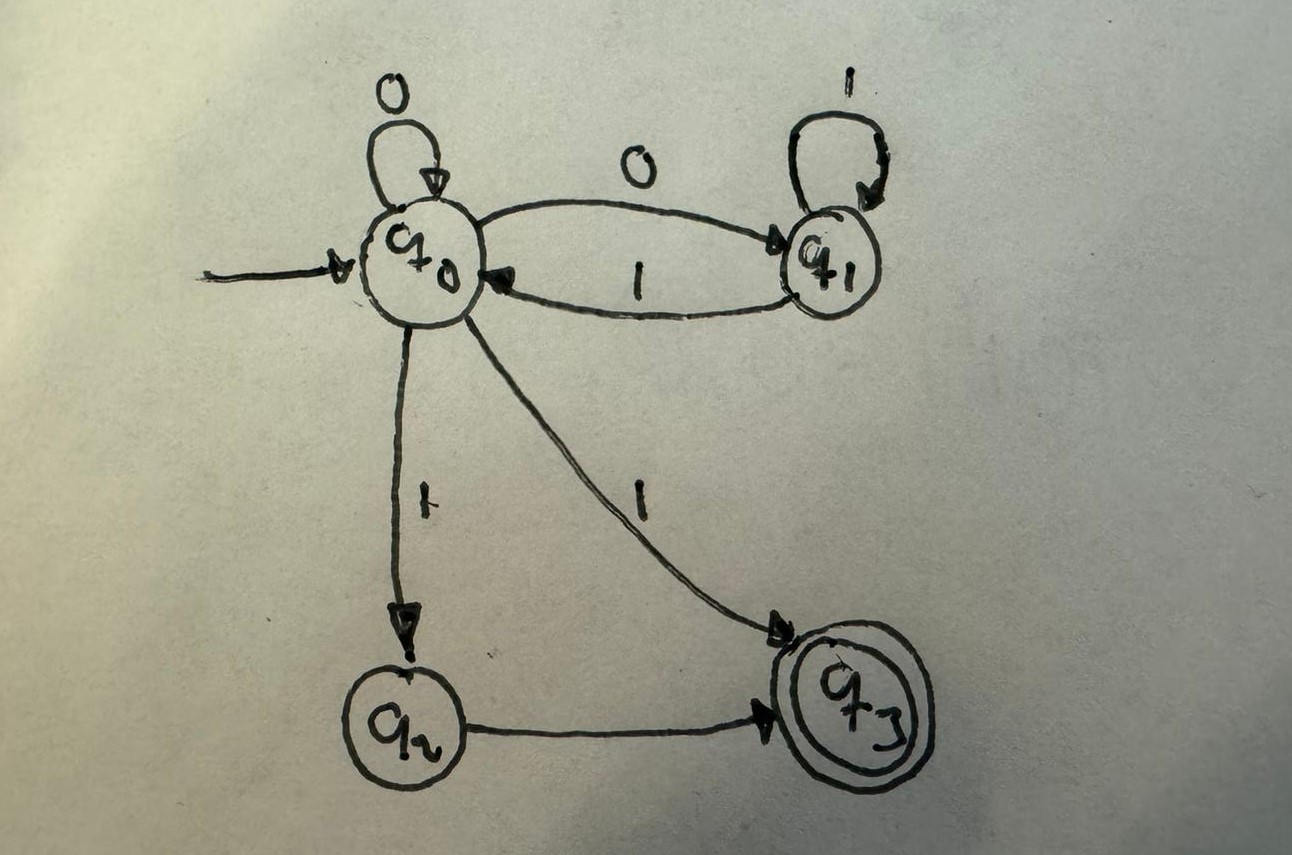 0
1
0
q0
1
q1
1
1
q2
q3